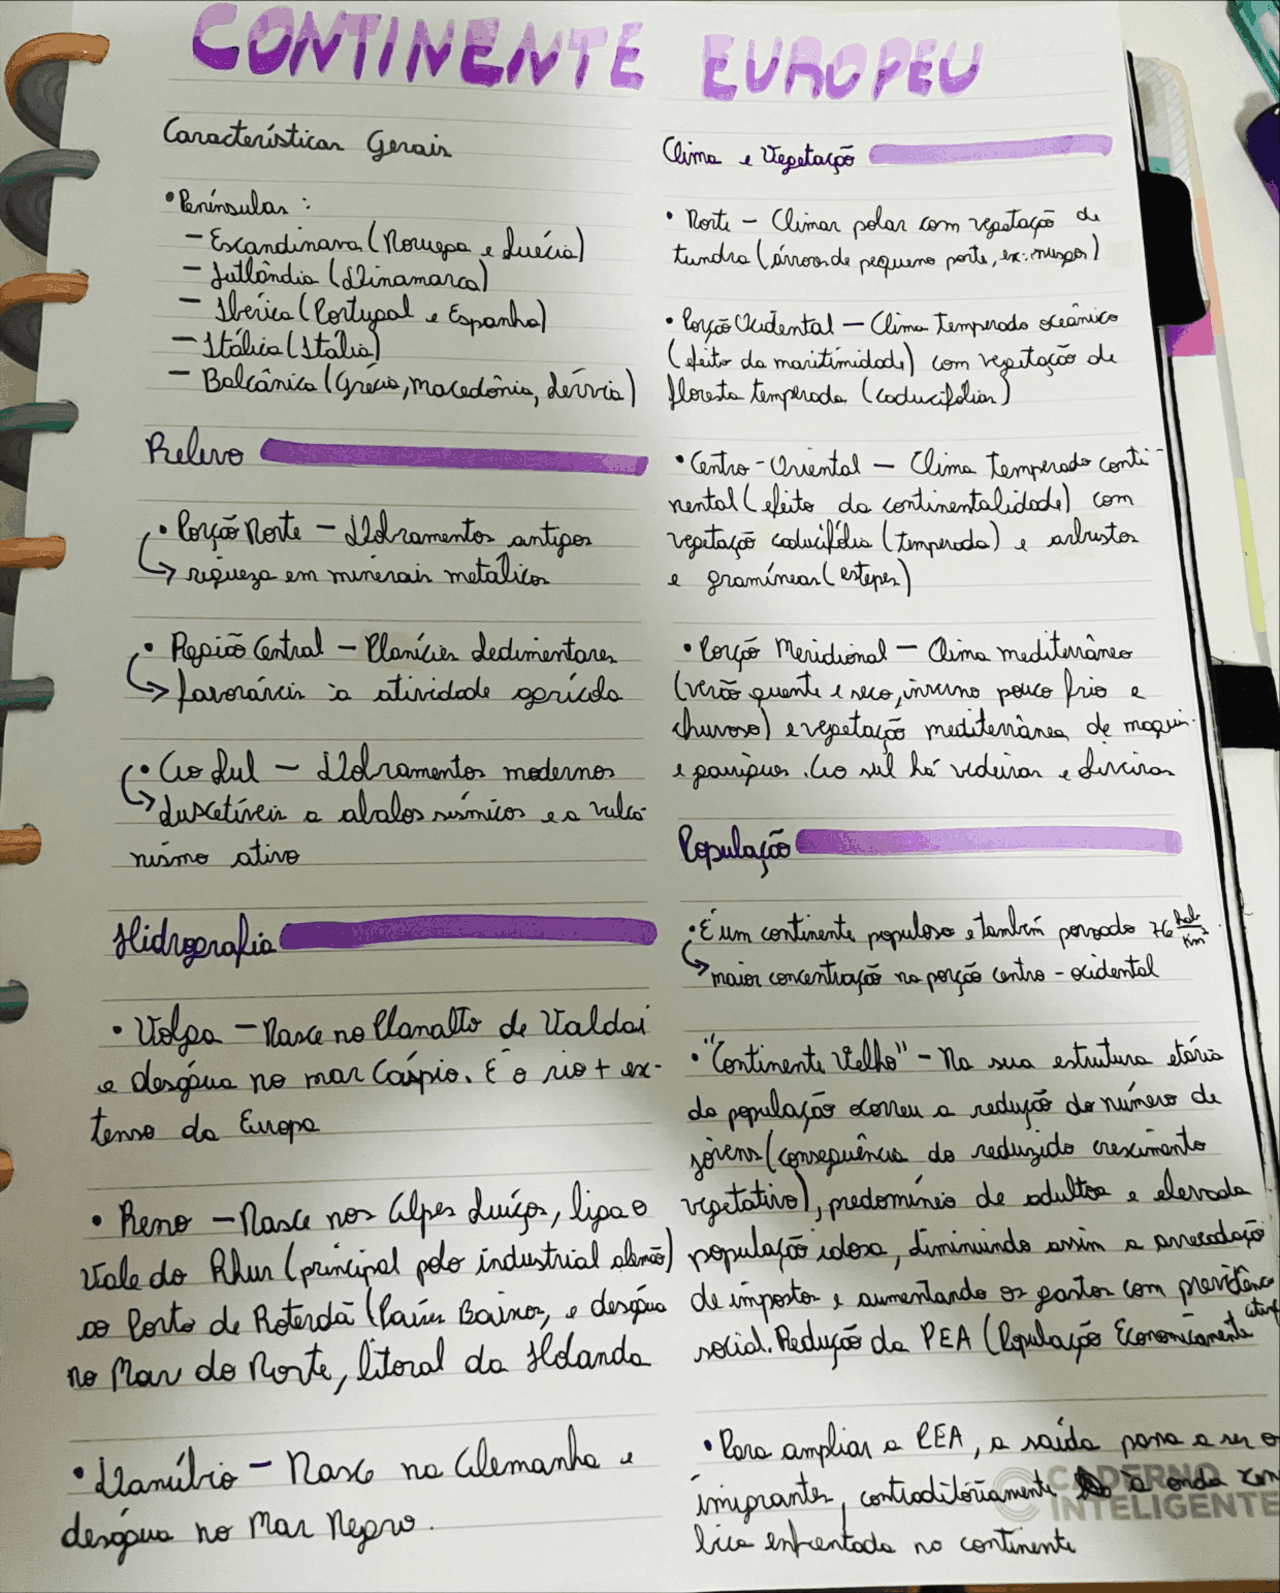 CONTINENTE EUROPEU
Características Gerais
• Penínsulas :
– Escandinava (Noruega e Suécia)
– Jutlândia (Dinamarca)
– Ibérica (Portugal e Espanha)
– Itálica (Itália)
– Balcânica (Grécia, Macedônia, Sérvia)
Relevo
• Porção Norte – Dobramentos antigos
↳ riqueza em minerais metálicos
• Região Central – Planícies Sedimentares
↳ favoráveis à atividade agrícola
• Ao Sul – Dobramentos modernos
↳ Suscetíveis a abalos sísmicos e a vulca-
nismo ativo
Hidrografia
• Volga – Nasce no Planalto de Valdai
e deságua no mar Cáspio. É o rio + ex-
tenso da Europa
• Reno – Nasce nos Alpes Suíços, liga o
Vale do Rhur (principal polo industrial alemão)
ao Porto de Roterdã (Países Baixos, e deságua
no Mar do Norte, litoral da Holanda
• Danúbio – Nasce na Alemanha e
deságua no Mar Negro.
Clima e Vegetação
• Norte – Climas polar com vegetação de
tundra (árvores de pequeno porte, ex: musgos)
• Porção Ocidental – Clima temperado oceânico
(efeito da maritimidade) com vegetação de
floresta temperada (caducifólias)
• Centro-Oriental – Clima temperado conti-
nental (efeito da continentalidade) com
vegetação caducifólia (temperada) e arbustos
e gramíneas (estepes)
• Porção Meridional – Clima mediterrâneo
(verão quente e seco, inverno pouco frio e
chuvoso) e vegetação mediterrânea de maquis
e garrigues. Ao sul há videiras e oliveiras
População
• É um continente populoso e também povoado 76 hab/km²
↳ maior concentração na porção centro-ocidental
• "Continente Velho" – Na sua estrutura etária
da população ocorreu a redução do número de
jovens (consequência do reduzido crescimento
vegetativo), predomínio de adultos e elevada
população idosa, diminuindo assim a arrecadação
de impostos e aumentando os gastos com previdência
social. Redução da PEA (População Economicamente ativa
• Para ampliar a PEA, a saída passa a ser o
imigrantes, contraditoriamente à onda xen
bica enfrentada no continente
CADERNO
INTELIGENTE